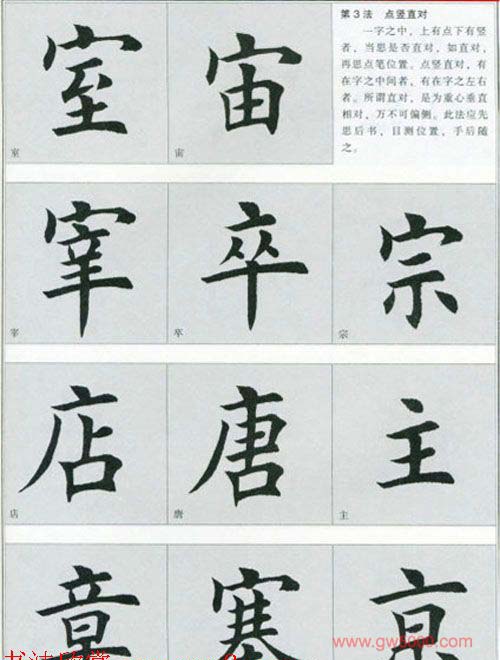 第3法 点竖直对
一字之中，上有点下有竖
者，当思是否直对，如直对，
再思点笔位置。点竖直对，有
在字之中间者，有在字之左右
者。所谓直对，是为重心垂直
相对，万不可偏侧。此法应先
思后书，目测位置，手后随
之。
室 宙
室 宙
宰 卒 宗
宰 卒 宗
店 唐 主
店 唐 主
章 塞
www.gw5000.com